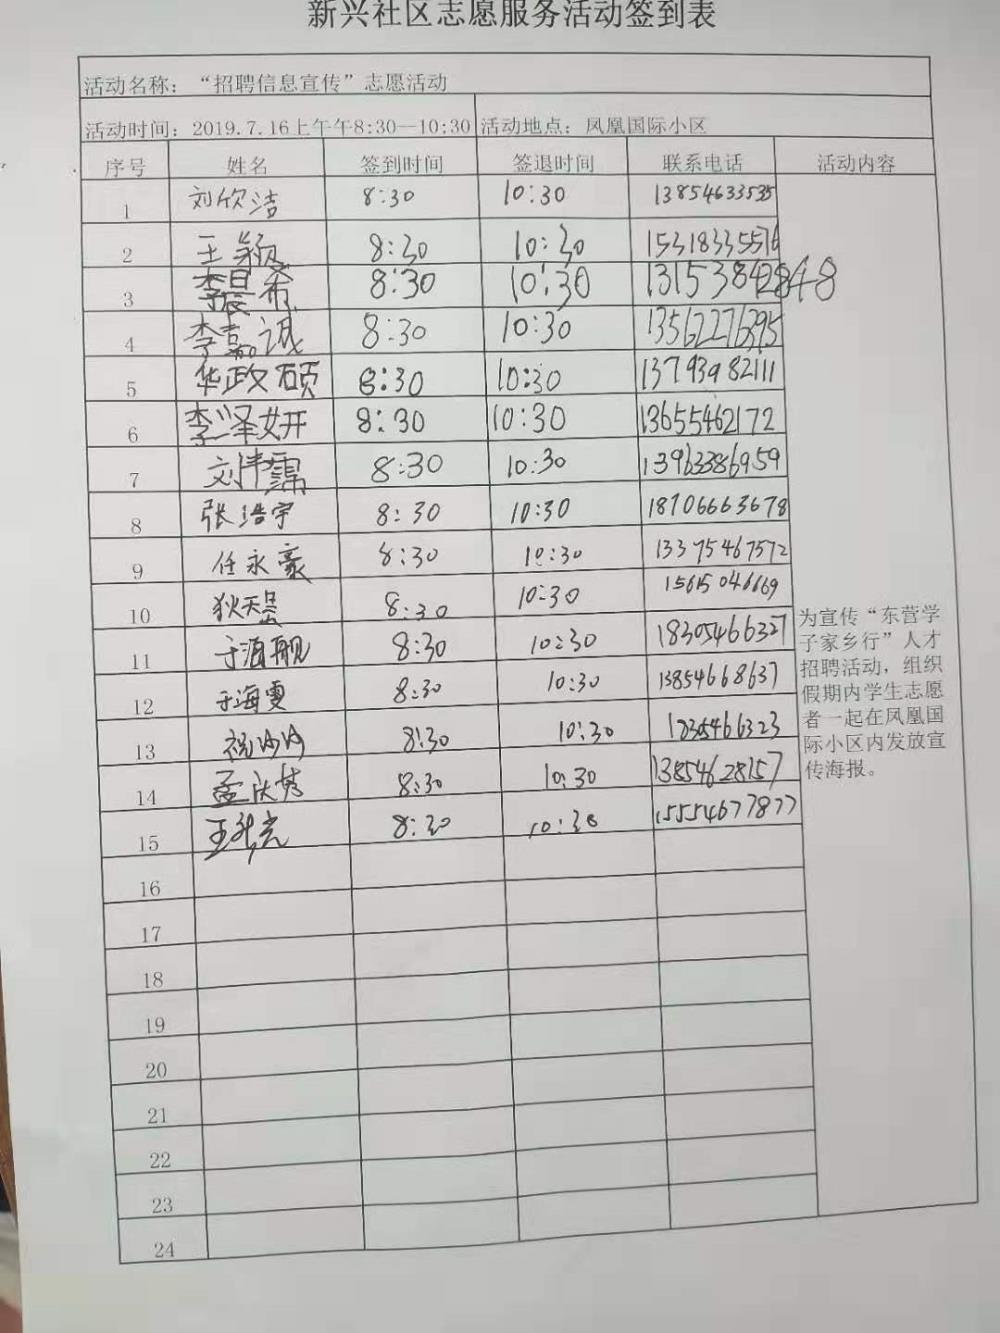 新兴社区志愿服务活动签到表
活动名称：“招聘信息宣传”志愿活动
活动时间：2019.7.16上午午8:30—10:30 活动地点：凤凰国际小区
序号 姓名 签到时间 签退时间 联系电话 活动内容
1 刘欣洁 8:30 10:30 13854633535
2 王颖 8:30 10:30 15318335576
3 李晨希 8:30 10:30 13153842848
4 李嘉诚 8:30 10:30 13562276395
5 华政硕 8:30 10:30 13793982111
6 李泽妍 8:30 10:30 13655462172
7 8:30 10:30 13963386959
8 张浩宇 8:30 10:30 18706663678
9 任永豪 8:30 10:30 13375467572
10 狄天昊 8:30 10:30 15615046669
11 于源舰 8:30 10:30 18305466327
12 于海雯 8:30 10:30 13854668637
13 8:30 10:30
14 8:30 10:30 13854628157
15 8:30 10:30 15554677877
16
17
18
19
20
21
22
23
24
为宣传“东营学
子家乡行”人才
招聘活动，组织
假期内学生志愿
者一起在凤凰国
际小区内发放宣
传海报。